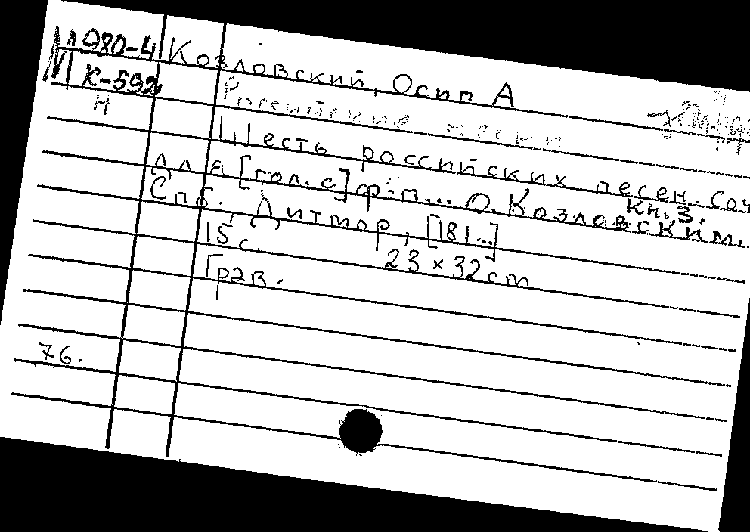 М 980-4 Козловский, Осип А
К-592
Н Российские песни
Шесть российских песен. Соч
для [гол. с] ф.-п... О. Козловским.
Кн. 3.
Спб., Дитмар, [181..]
15 с. 23 × 32 cm
Грав.
76.